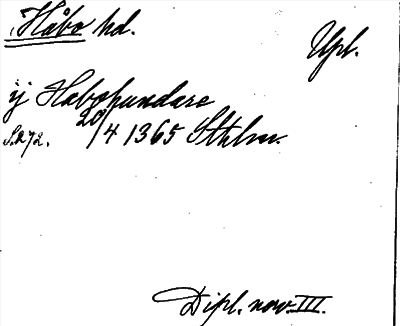 Håbo hd.
Upl.
ij Habohundare
S. 272. 20/4 1365 Sthlm.
Dipl. nov. III.